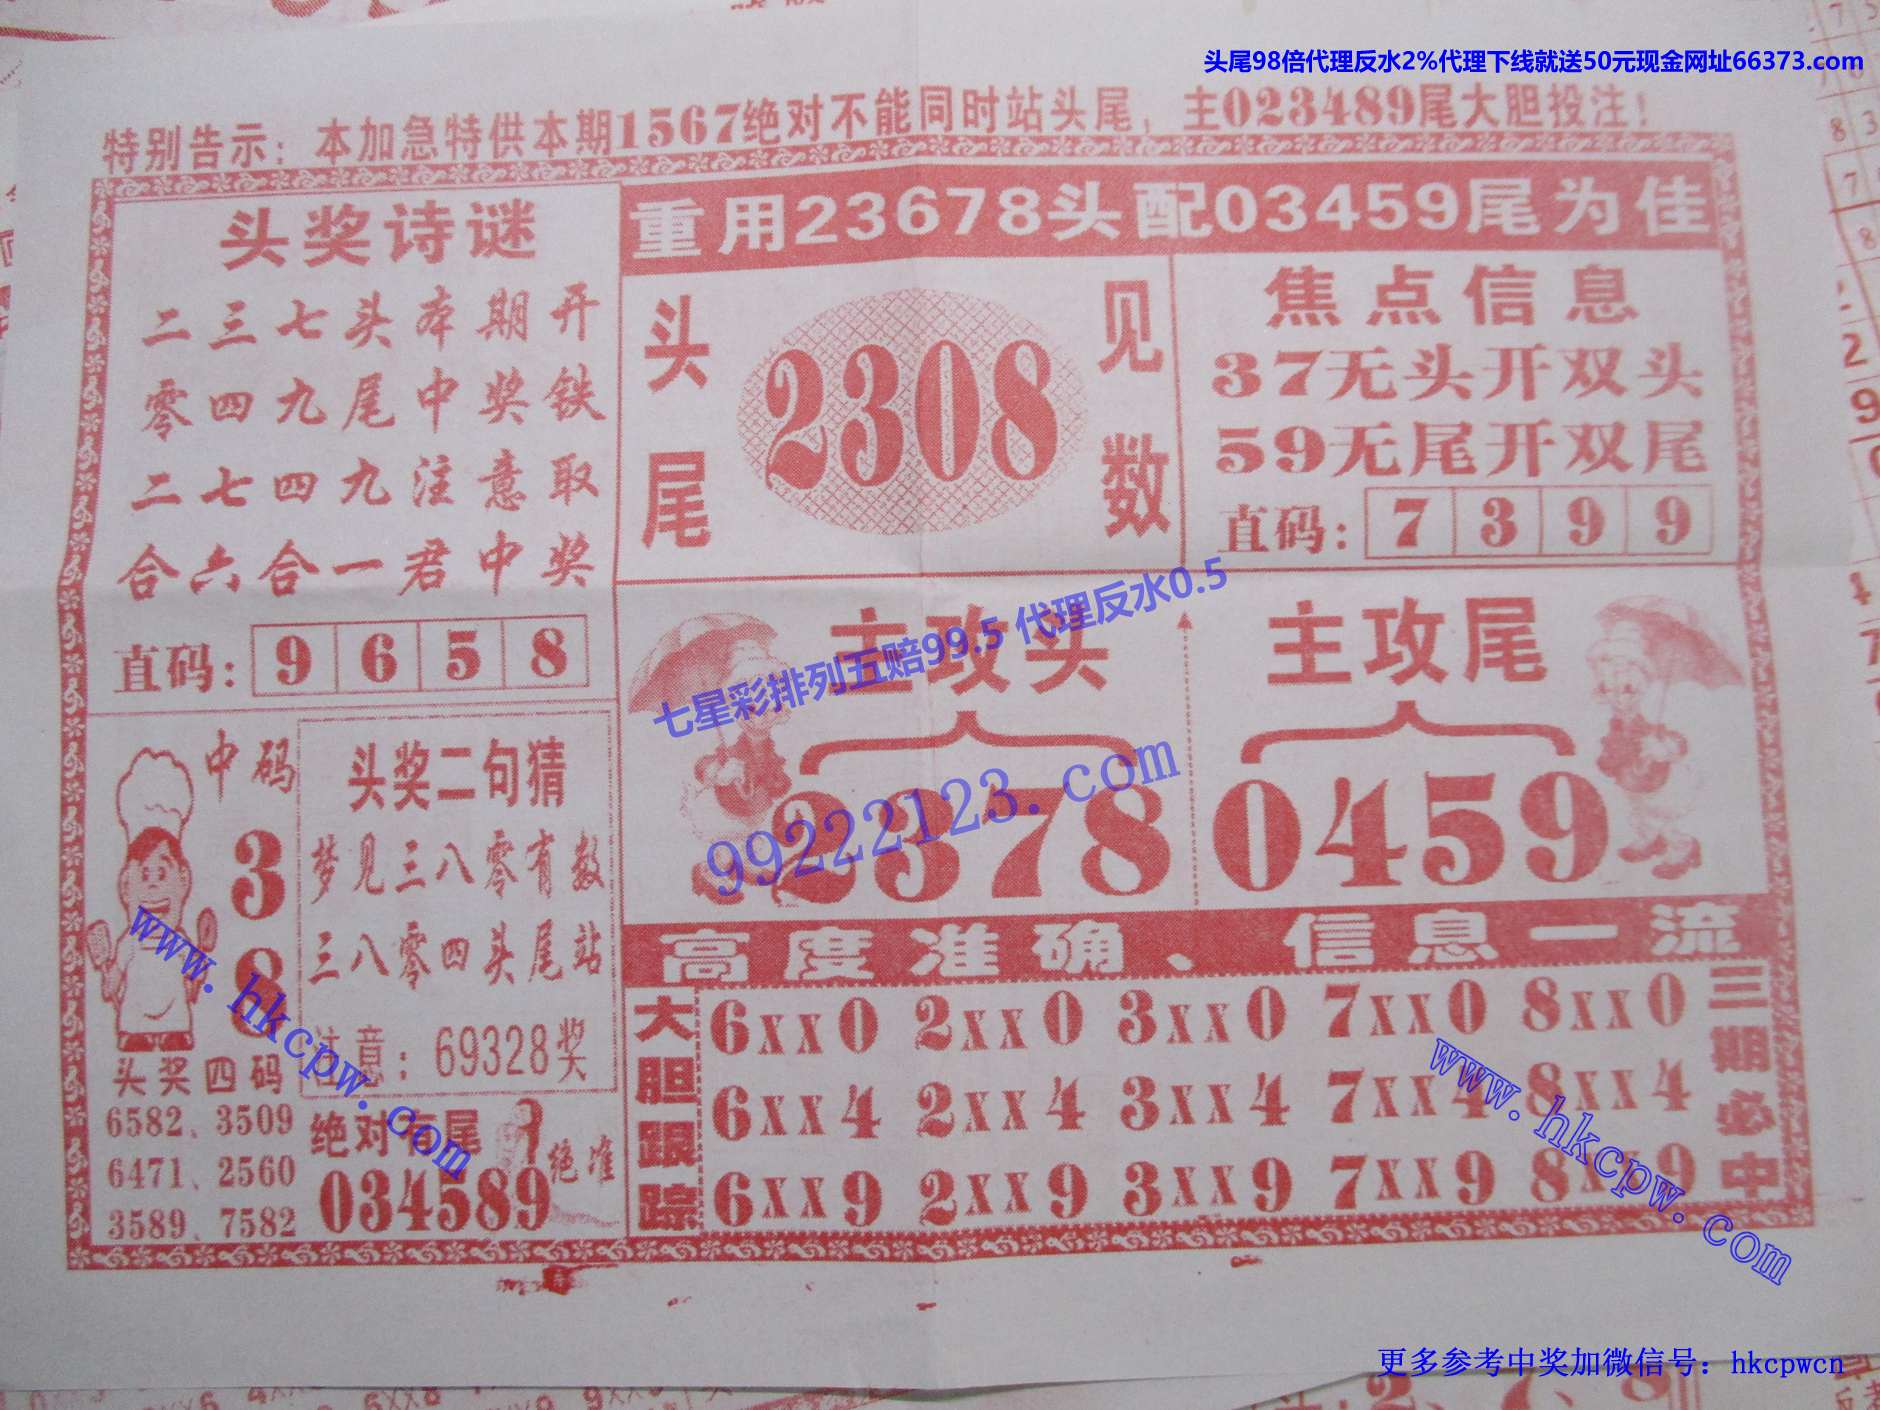 头尾98倍代理反水2%代理下线就送50元现金网址66373.com
特别告示：本加急特供本期1567绝对不能同时站头尾，主023489尾大胆投注！
头奖诗谜
二三七头本期开
零四九尾中奖铁
二七四九注意取
合六合一君中奖
直码：9658
重用23678头配03459尾为佳
头尾
2308
见数
焦点信息
37无头开双头
59无尾开双尾
直码：7399
七星彩排列五赔99.5 代理反水0.5
99222123.com
主攻头
2378
主攻尾
0459
中码
3
8
头奖四码
6582、3509
6471、2560
3589、7582
头奖二句猜
梦见三八零有数
三八零四头尾站
注意：69328奖
绝对有尾
034589
绝准
www.hkcpw.com
高度准确、信息一流
大胆跟踪
6xx0 2xx0 3xx0 7xx0 8xx0
6xx4 2xx4 3xx4 7xx4 8xx4
6xx9 2xx9 3xx9 7xx9 8xx9
三期必中
www.hkcpw.com
更多参考中奖加微信号：hkcpwcn